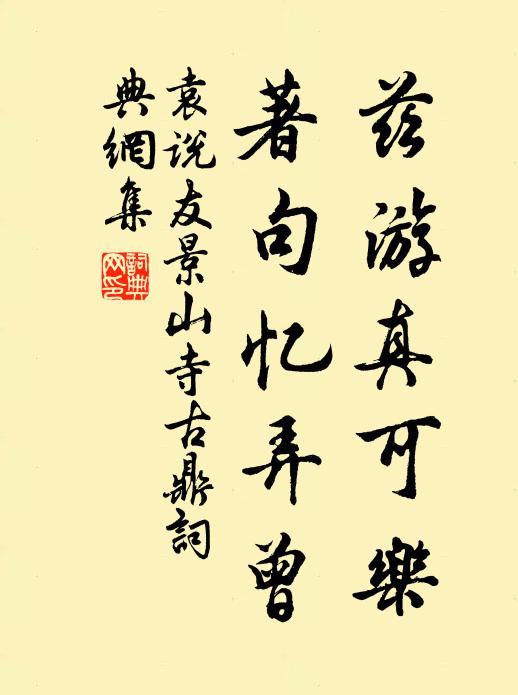 兹游真可樂
著句忆弄曾
袁说友景山寺古鼎詞
典網集
詞典網印